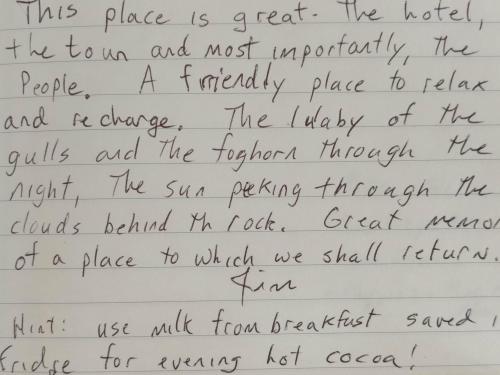 This place is great. The hotel,
the town and most importantly, the
People. A frriendly place to relax
and recharge. The lulaby of the
gulls and the foghorn through the
night, The sun peeking through the
clouds behind th rock. Great memor
of a place to which we shall return.
Jim
Hint: use milk from breakfast saved i
fridge for evening hot cocoa!